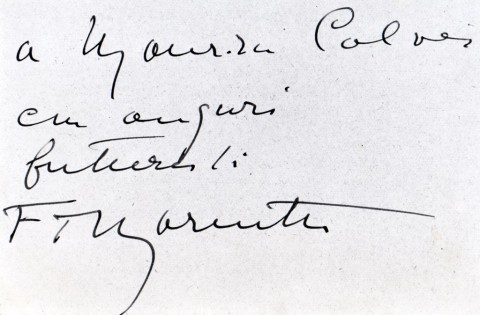 a Maurizi Calvesi
con auguri
futuristi
F T Marinetti